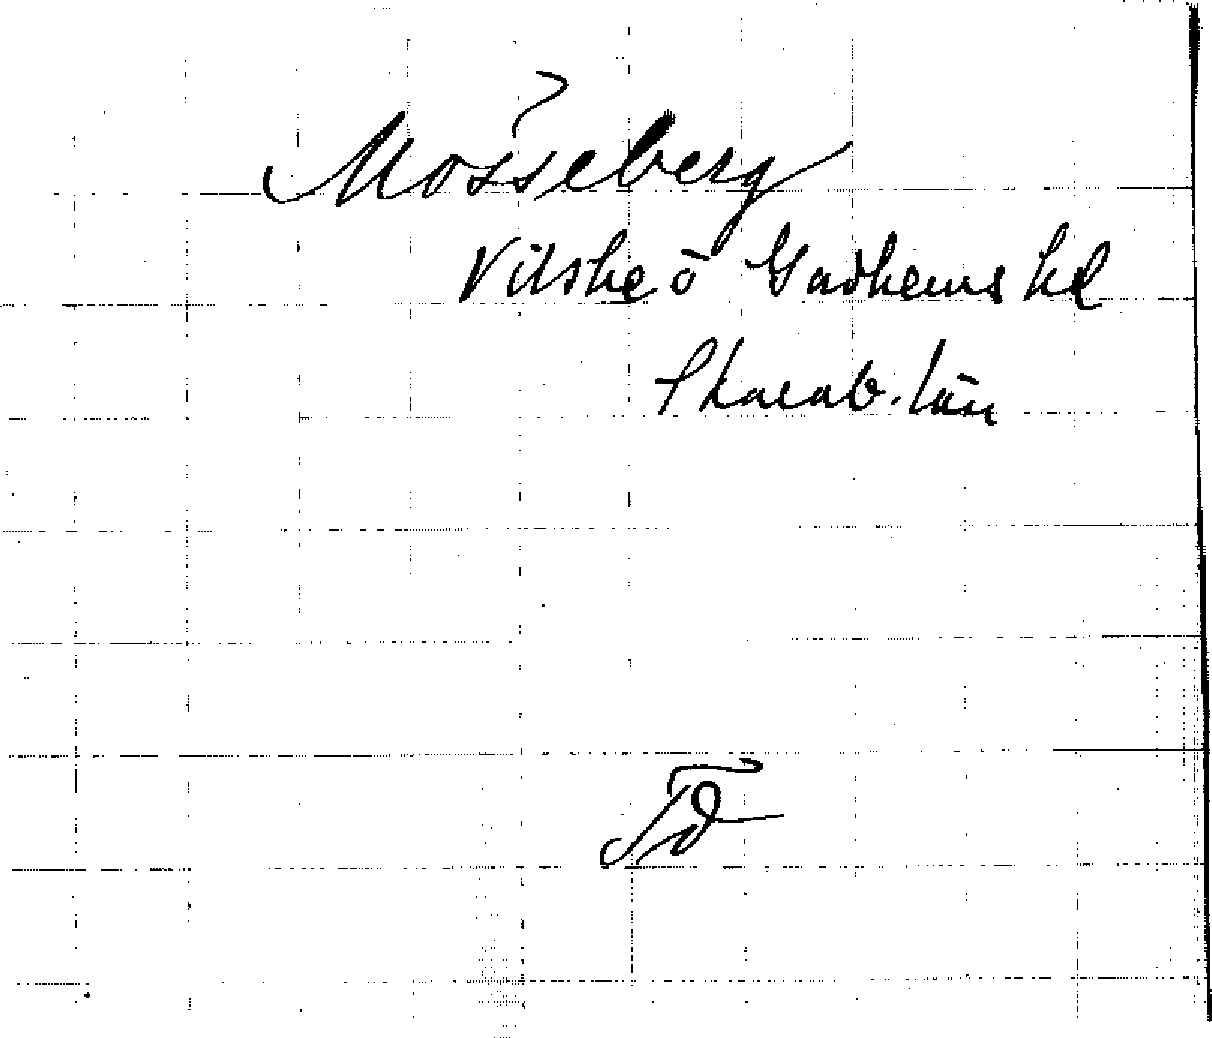 Mösseberg
Vilske ö Gudhems hd
Skarab. län
Fd